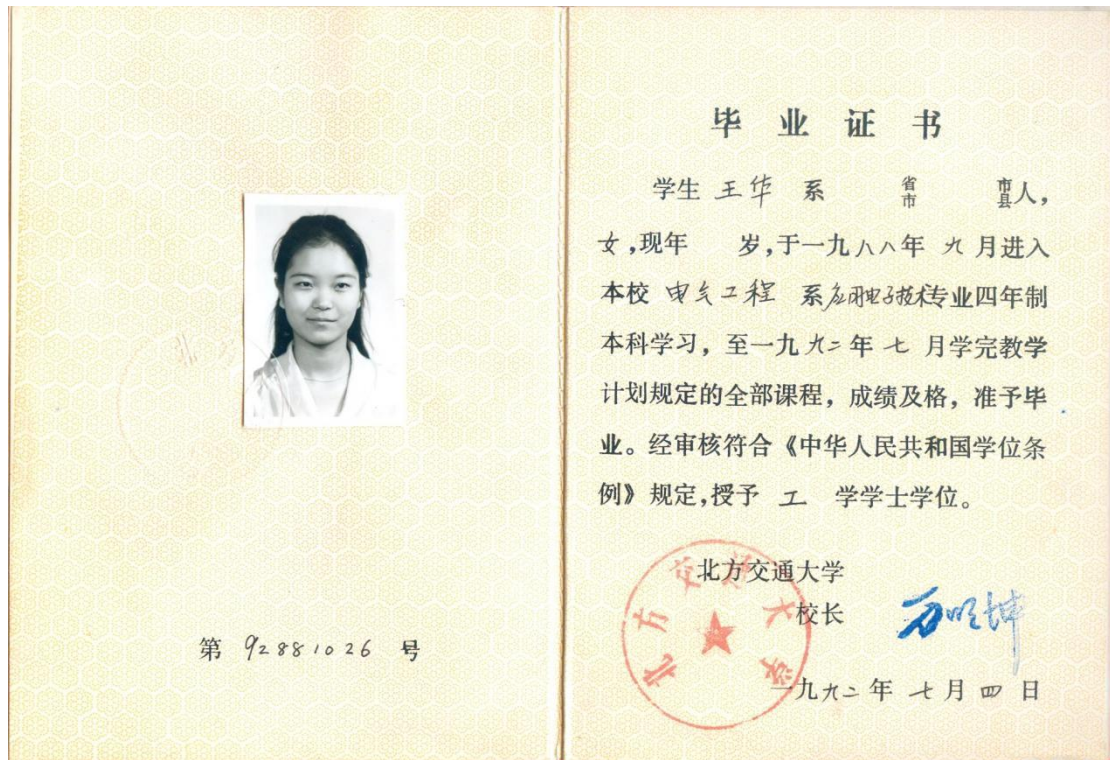 北方
第 92881026 号
毕业证书
学生 王华 系 省市 市县人，
女，现年 岁，于一九八八年 九 月进入
本校 电气工程 系应用电子技术专业四年制
本科学习，至一九九二年 七 月学完教学
计划规定的全部课程，成绩及格，准予毕
业。经审核符合《中华人民共和国学位条
例》规定，授予 工 学学士学位。
北方交通大学
北方交通大学
校长 万明坤
一九九二年 七月四 日